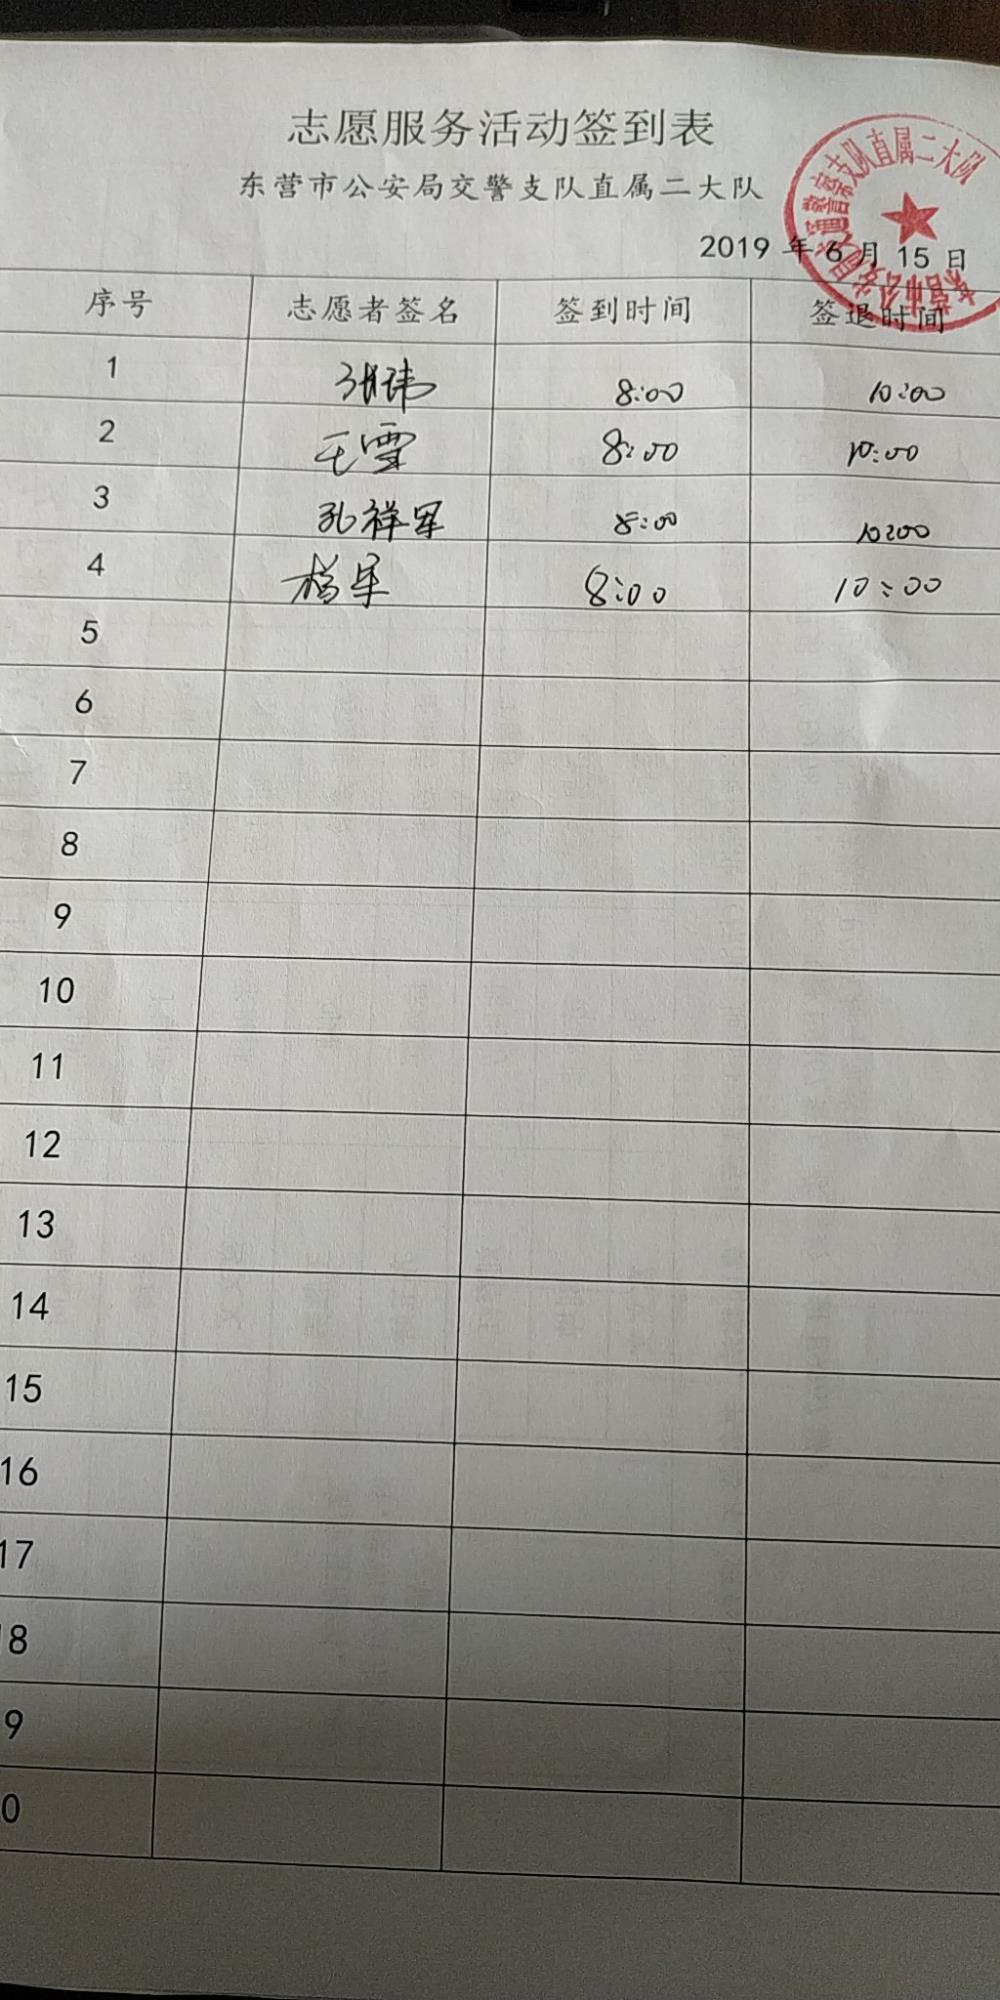 志愿服务活动签到表
东营市公安局交警支队直属二大队
2019 年 6 月 15 日
序号 志愿者签名 签到时间 签退时间
1 张玮 8:00 10:00
2 王雪 8:00 10:00
3 孔祥军 8:00 10:00
4 杨军 8:00 10:00
5
6
7
8
9
10
11
12
13
14
15
16
17
8
9
0
东营市公安局交通警察支队直属二大队